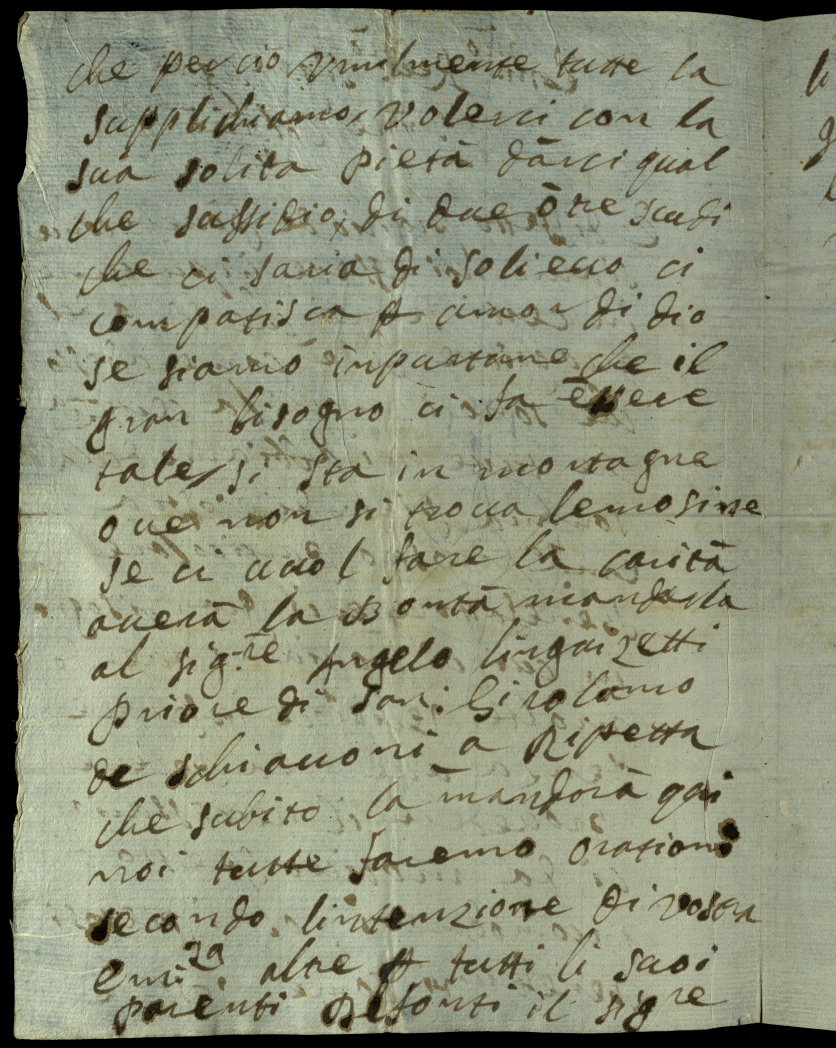 che per cio vmilmente tutte la
supplichiamo, volerci con la
sua solita pietà dàrci qual
che sussidio, di due ò tre scudi
che ci saria di solieuo ci
compatisca amor di dio
se siamo inportune che il
gran bisogno ci fa èssere
tale, si sta in montagne
oue non si troua lemosine
se ci uuol fare la carità
auerà la Bontà mandarla
al sig:re Angelo
priore di San: Girolamo
de schiauoni a Ripetta
che subito la manderà qui
noi tutte faremo orationi
secondo lintenzione di vostra
emi:za altre tutti li suoi
parenti Defonti il sigre